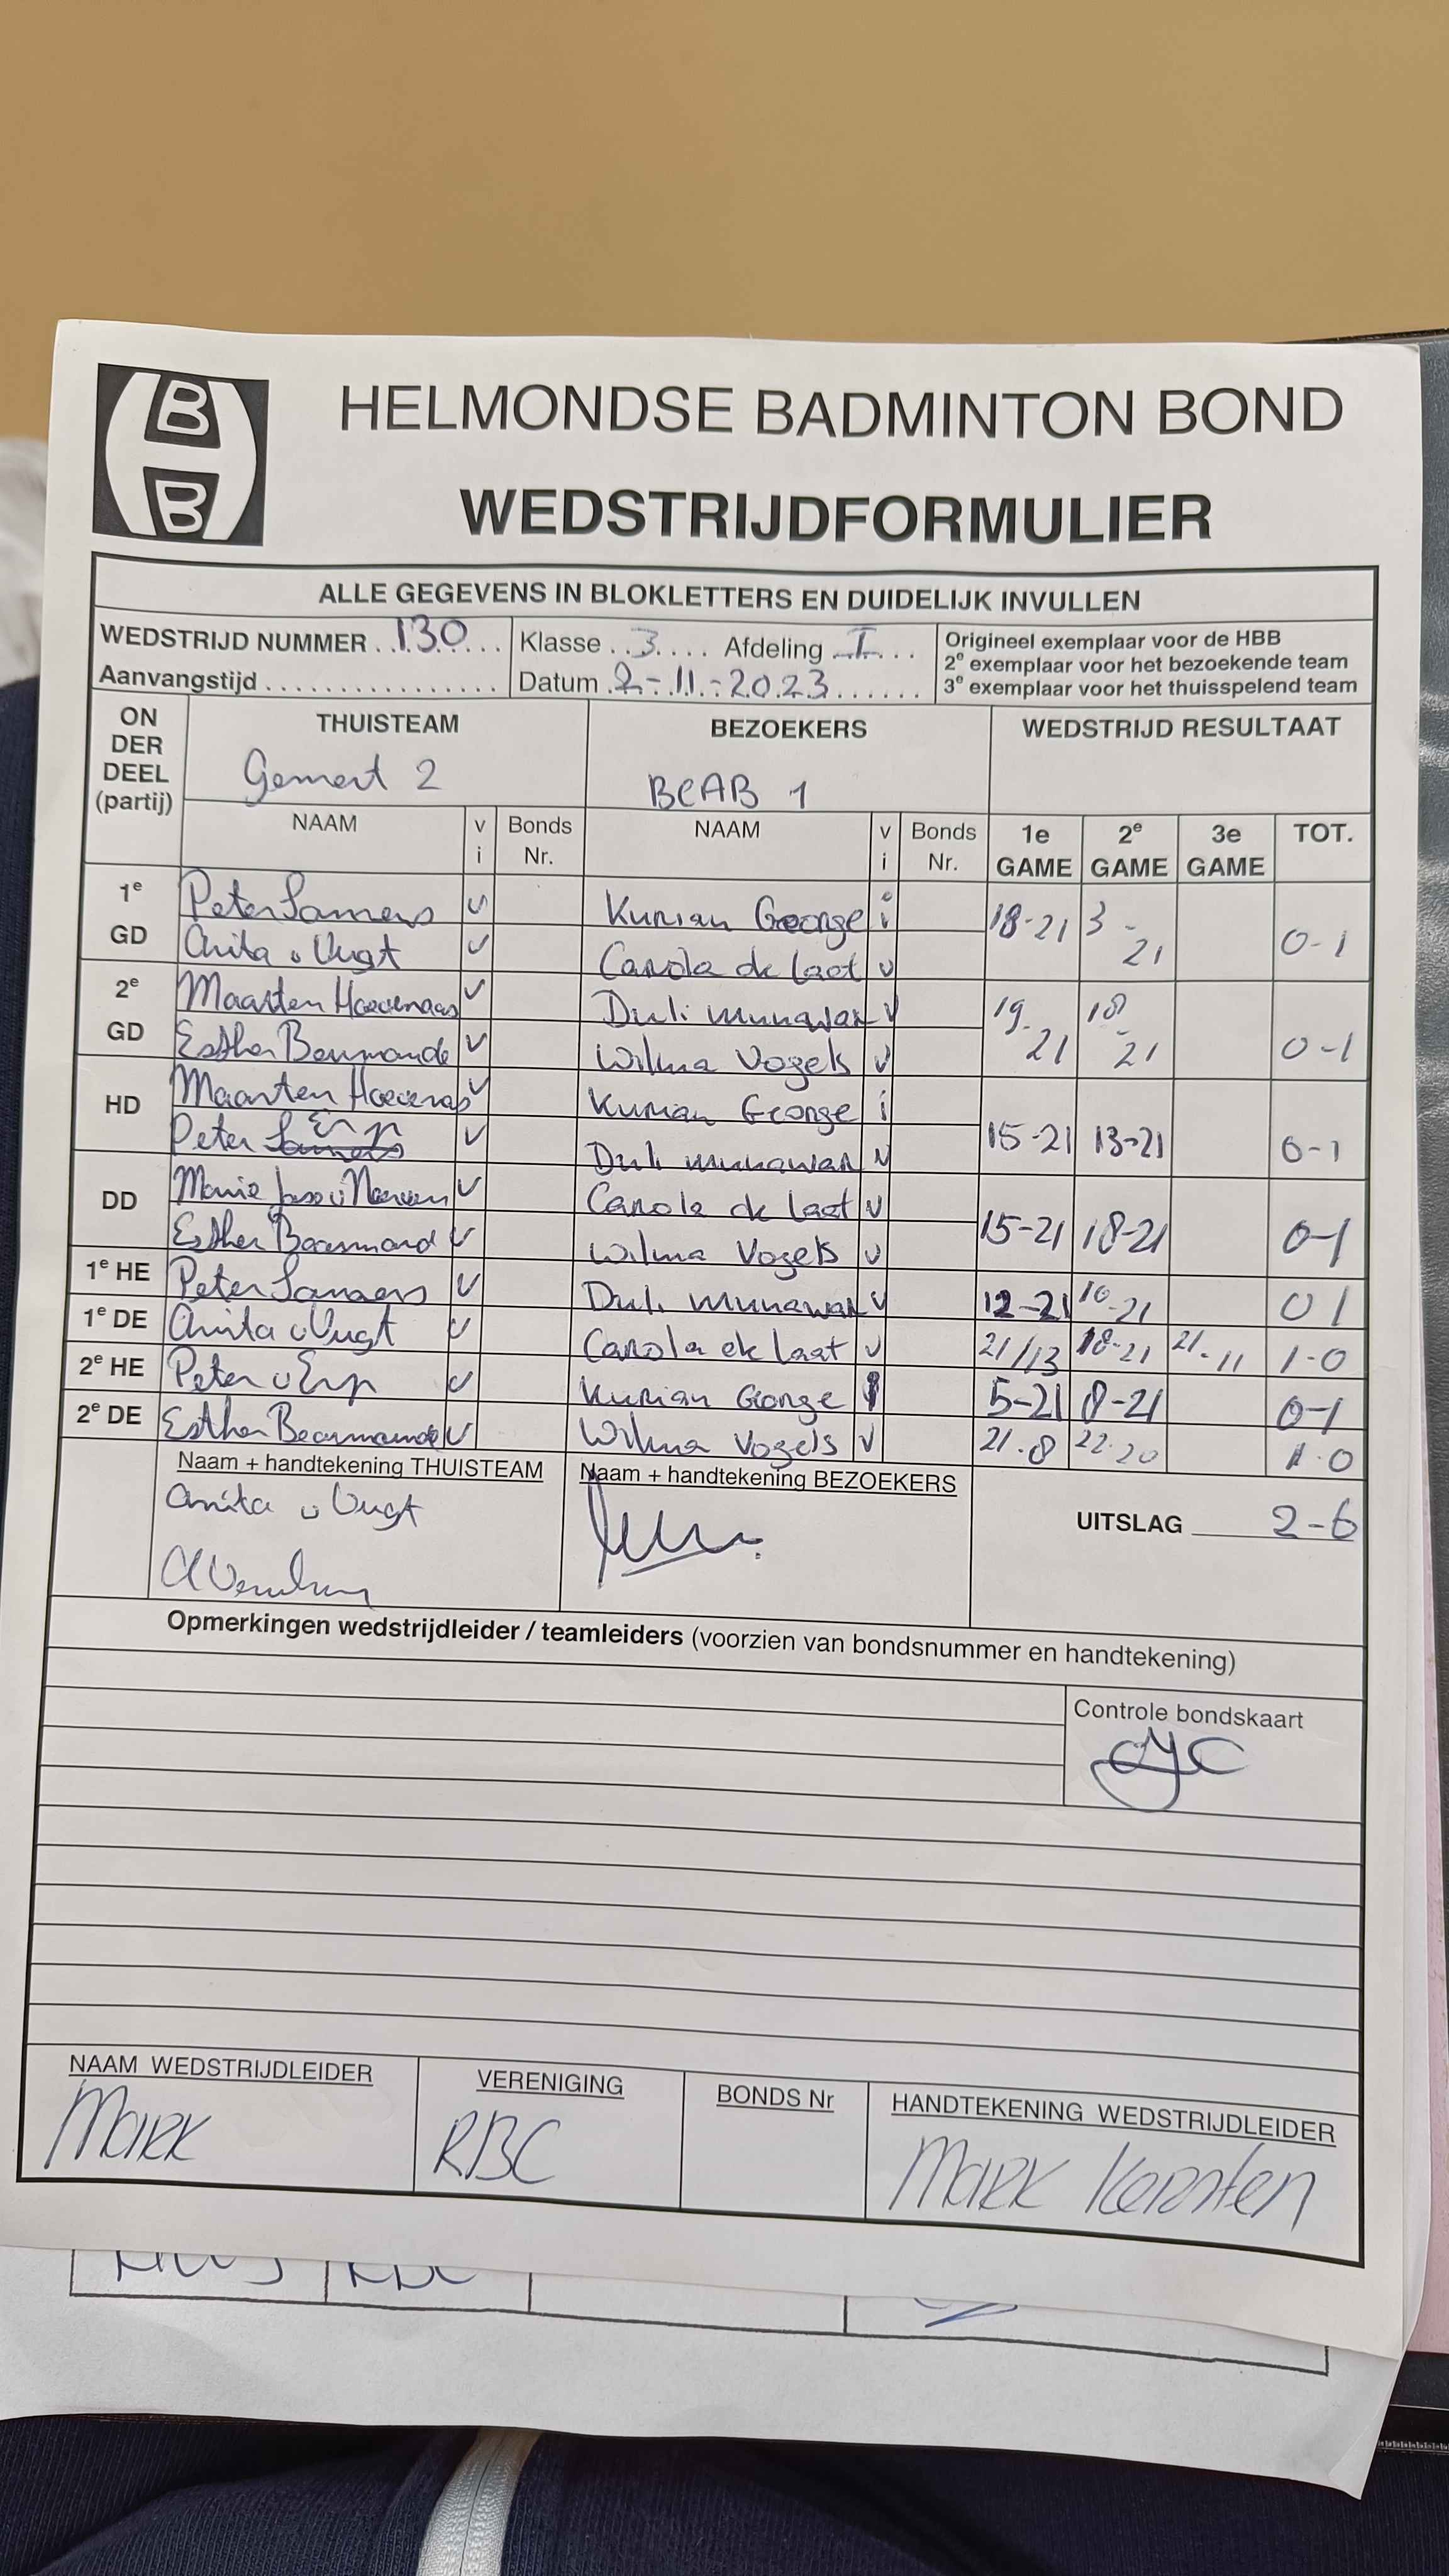 B
B
HELMONDSE BADMINTON BOND
WEDSTRIJDFORMULIER
ALLE GEGEVENS IN BLOKLETTERS EN DUIDELIJK INVULLEN
WEDSTRIJD NUMMER 130 Klasse 3 Afdeling I Origineel exemplaar voor de HBB
2e exemplaar voor het bezoekende team
Aanvangstijd Datum 2-11-2023 3e exemplaar voor het thuisspelend team
ON DER DEEL (partij) THUISTEAM BEZOEKERS WEDSTRIJD RESULTAAT
Gemert 2 BCAB 1
NAAM v i Bonds Nr. NAAM v i Bonds Nr. 1e GAME 2e GAME 3e GAME TOT.
1e GD Peter v Kurian George i 18-21 3-21 0-1
Anita v Vugt v Carola de Laat v
2e GD Maarten v Duli Munawar v 19-21 18-21 0-1
Esther v Wilma Vogels v
HD Maarten v Kurian George i 15-21 13-21 0-1
Peter Erp v Duli Munawar v
DD v Carola de Laat v 15-21 18-21 0-1
Esther v Wilma Vogels v
1e HE Peter v Duli Munawar v 12-21 10-21 0 1
1e DE Anita v Vugt v Carola de Laat v 21/13 18-21 21-11 1-0
2e HE Peter v Erp v Kurian George 5-21 8-21 0-1
2e DE Esther v Wilma Vogels v 21-8 22-20 1-0
Naam + handtekening THUISTEAM Naam + handtekening BEZOEKERS
Anita v Vugt
UITSLAG 2-6
Opmerkingen wedstrijdleider / teamleiders (voorzien van bondsnummer en handtekening)
Controle bondskaart
NAAM WEDSTRIJDLEIDER VERENIGING BONDS Nr HANDTEKENING WEDSTRIJDLEIDER
Mark RBC Mark Kersten